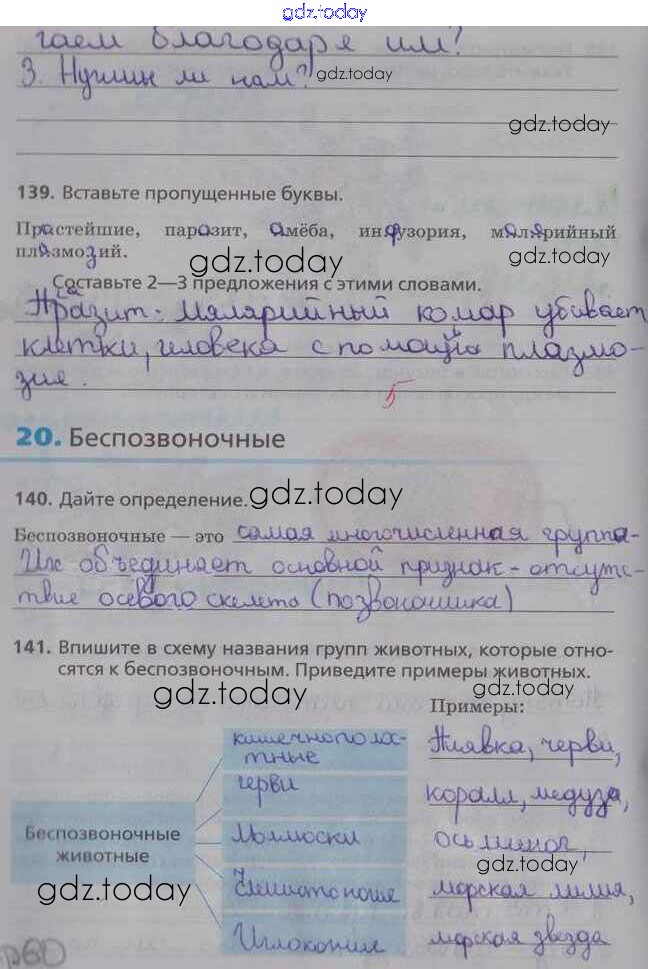 gdz.today
гаем благодаря им?
3. Нужны ли нам? gdz.today
gdz.today
139. Вставьте пропущенные буквы.
Прастейшие, паразит, амёба, инфузория, малярийный
плазмозий. gdz.today gdz.today
Составьте 2—3 предложения с этими словами.
Паразит. Малярийный комар убивает
клетки, человека с помощью плазмо-
зия. 5
20. Беспозвоночные
140. Дайте определение. gdz.today
Беспозвоночные — это самая многочисленная группа.
Их объединяет основной признак - отсутс-
твие осевого скелета (позвоночника)
141. Впишите в схему названия групп животных, которые отно-
сятся к беспозвоночным. Приведите примеры животных.
gdz.today gdz.today
Примеры:
кишечнополос-
тные
Пиявка, черви,
черви
коралл, медуза,
Беспозвоночные
животные
Моллюски
осьминог,
gdz.today gdz.today
Членистоногие
морская лилия,
Иглокожие
морская звезда